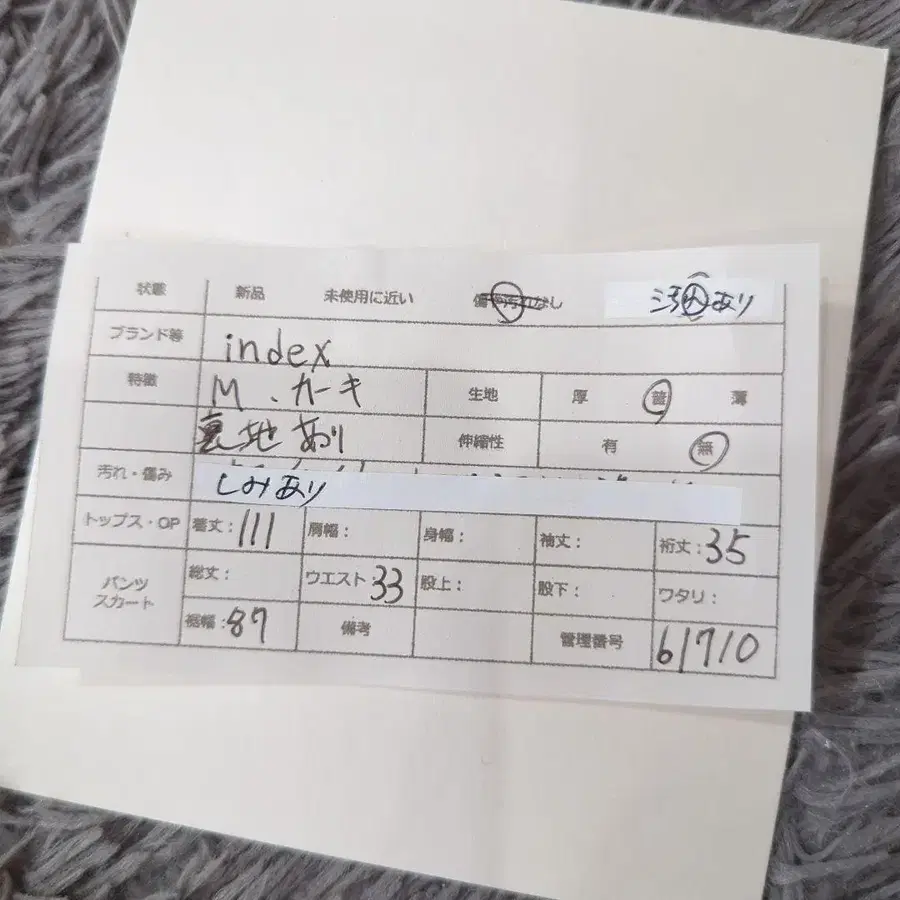 状態 新品 未使用に近い 傷や汚れなし あり
ブランド等 index
特徴 M、カーキ 生地 厚 普 薄
裏地あり 伸縮性 有 無
汚れ・傷み しみあり
トップス・OP 着丈：111 肩幅： 身幅： 袖丈： 裄丈：35
パンツ スカート 総丈： ウエスト 33 股上： 股下： ワタリ：
裾幅：87 備考 管理番号 61710